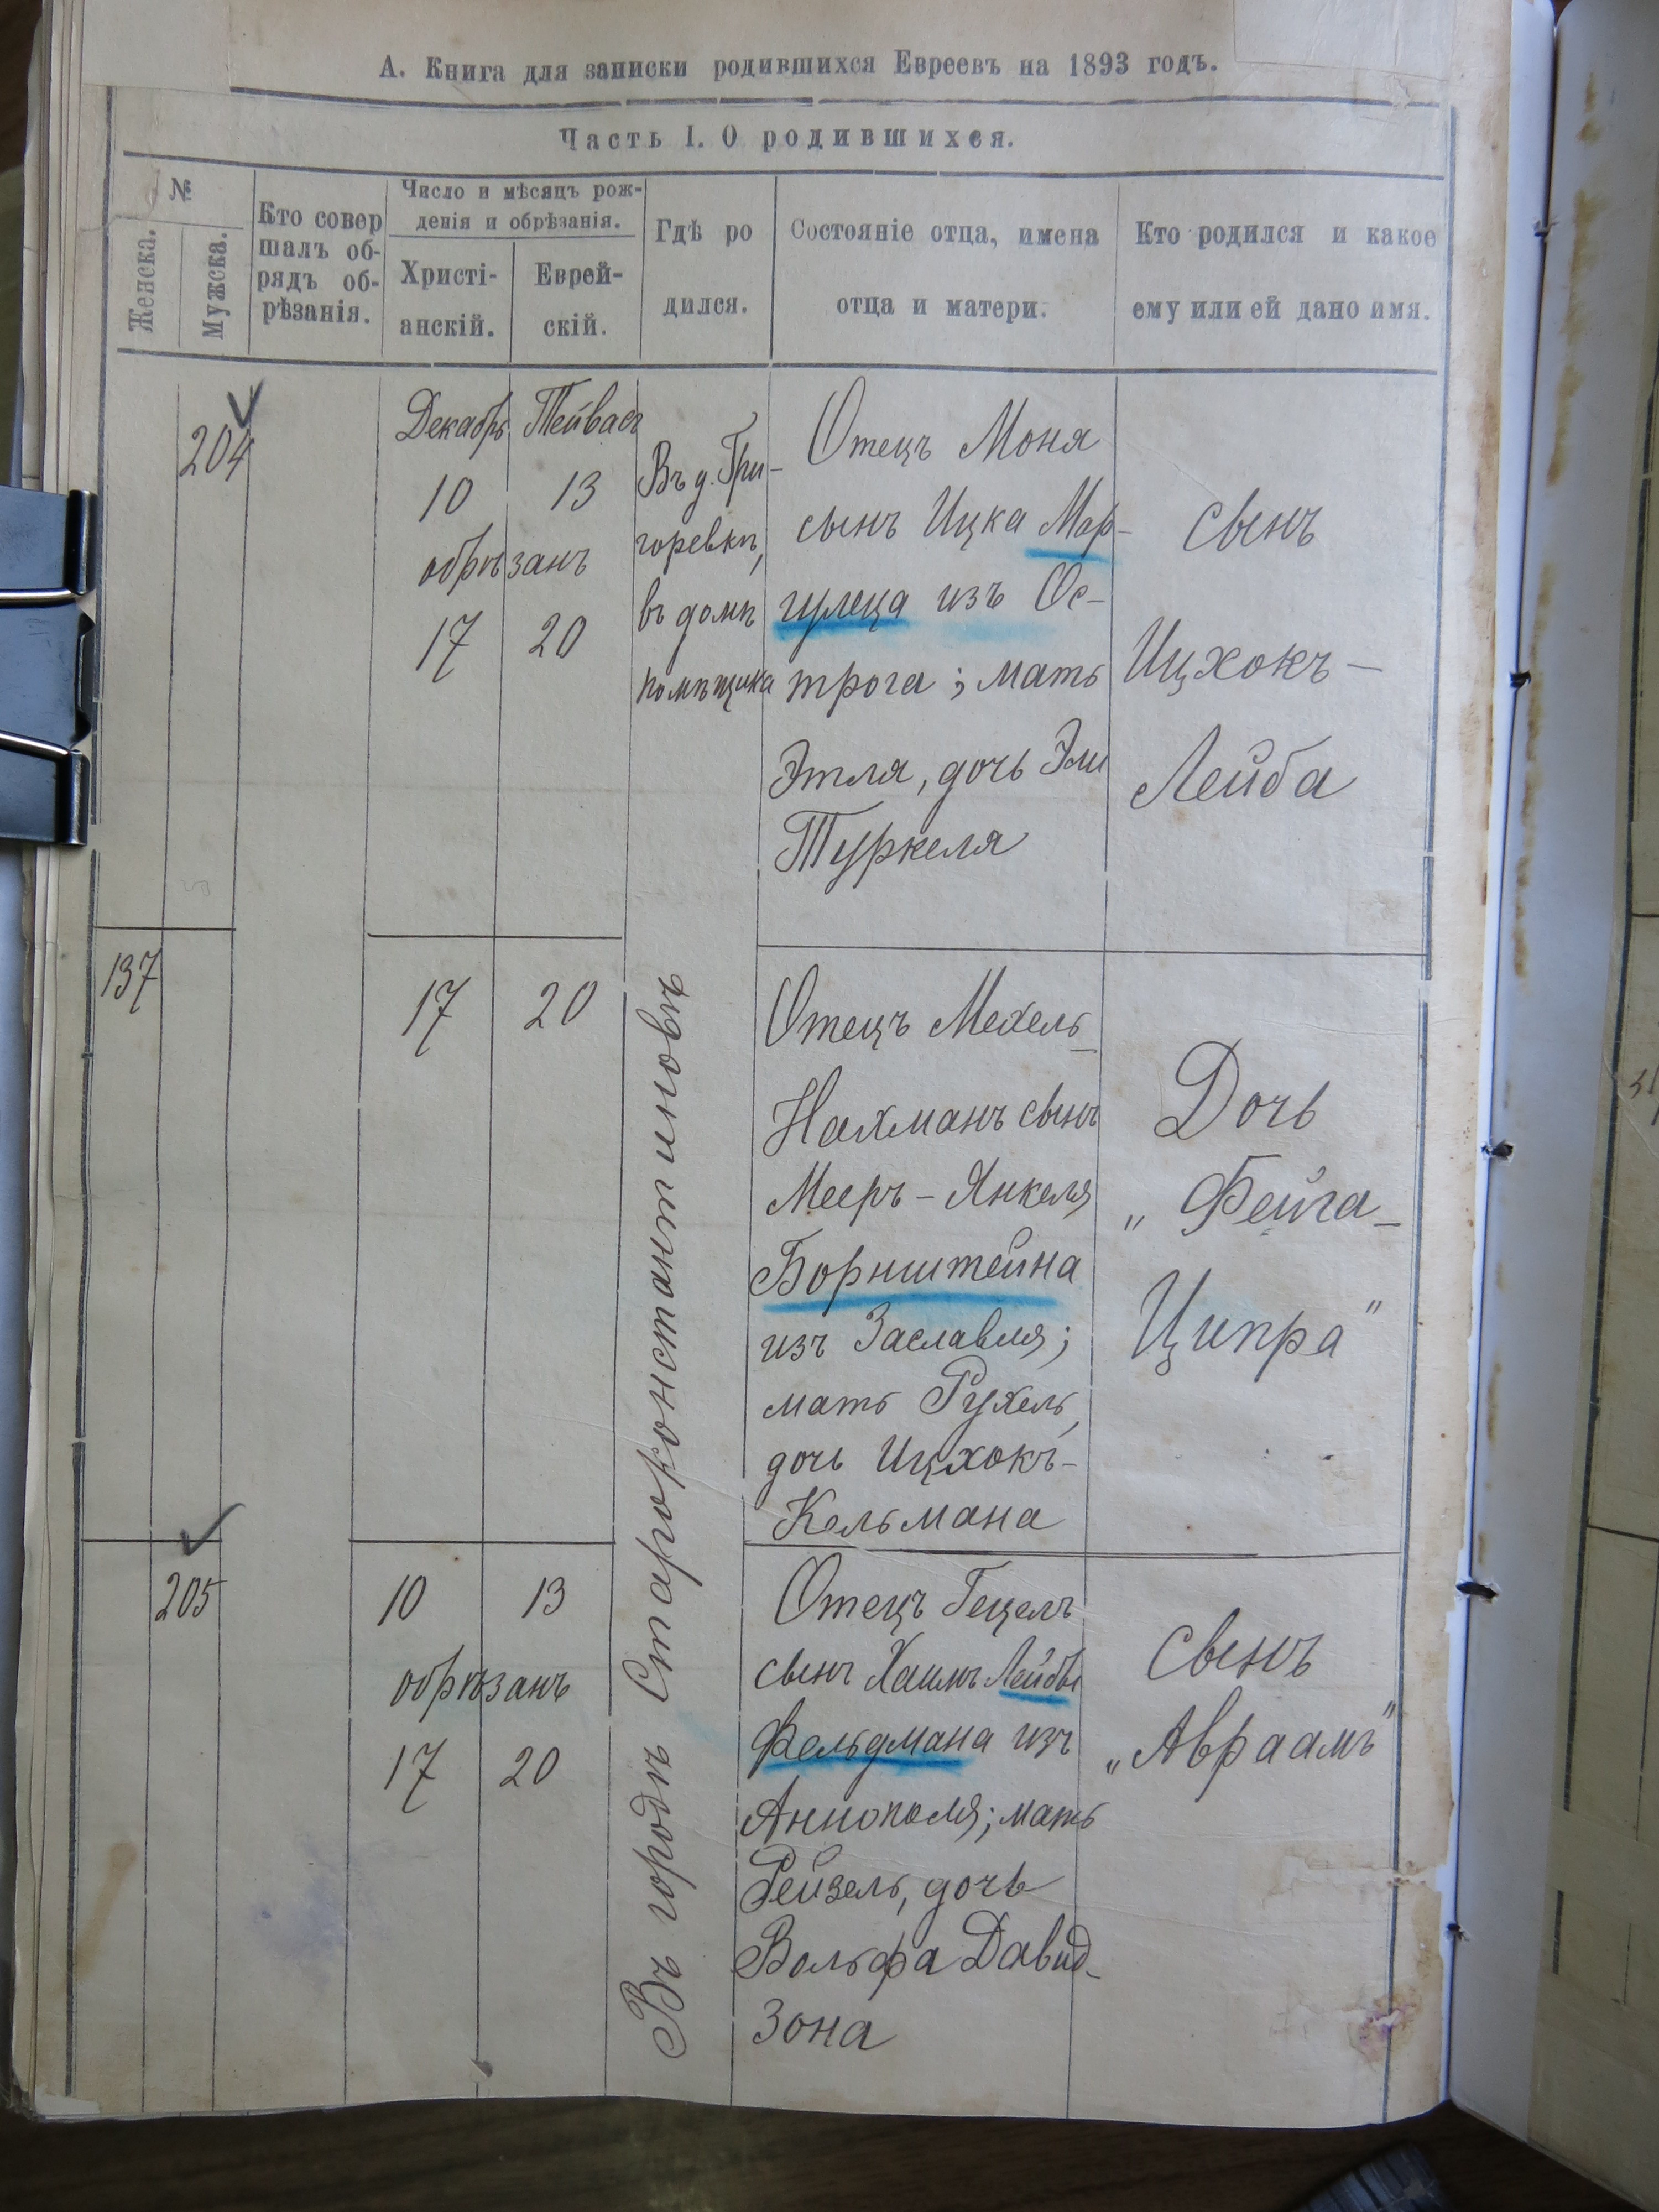 А. Книга для записки родившихся Евреевъ на 1893 годъ.
Часть I. О родившихся.
№
Женска.
Мужска.
Кто совер
шалъ об-
рядъ об-
рѣзанія.
Число и мѣсяцъ рож-
денія и обрѣзанія.
Христі-
анскій.
Еврей-
скій.
Гдѣ ро
дился.
Состояніе отца, имена
отца и матери.
Кто родился и какое
ему или ей дано имя.
204
Декабрь Тейвасъ
10 13
обрѣзанъ
17 20
Въ д. Гри-
горевкѣ,
въ домѣ
помѣщика
Отецъ Моня
сынъ Ицка Мар-
гулеца изъ Ос-
трога; мать
Этля, дочь Эли
Туркеля
сынъ
Ицхокъ-
Лейба
137
17 20
Въ городѣ Староконстантиновѣ
Отецъ Мехель-
Нахманъ сынъ
Мееръ-Янкеля
Борнштейна
изъ Заславля;
мать Рухель,
дочь Ицхокъ-
Кельмана
Дочь
„Фейга-
Ципра"
205
10 13
обрѣзанъ
17 20
Отецъ Гецель
сынъ Хаимъ Лейбы
Фельдмана изъ
Аннополя; мать
Рейзель, дочь
Вольфа Давид-
зона
сынъ
„Авраамъ"